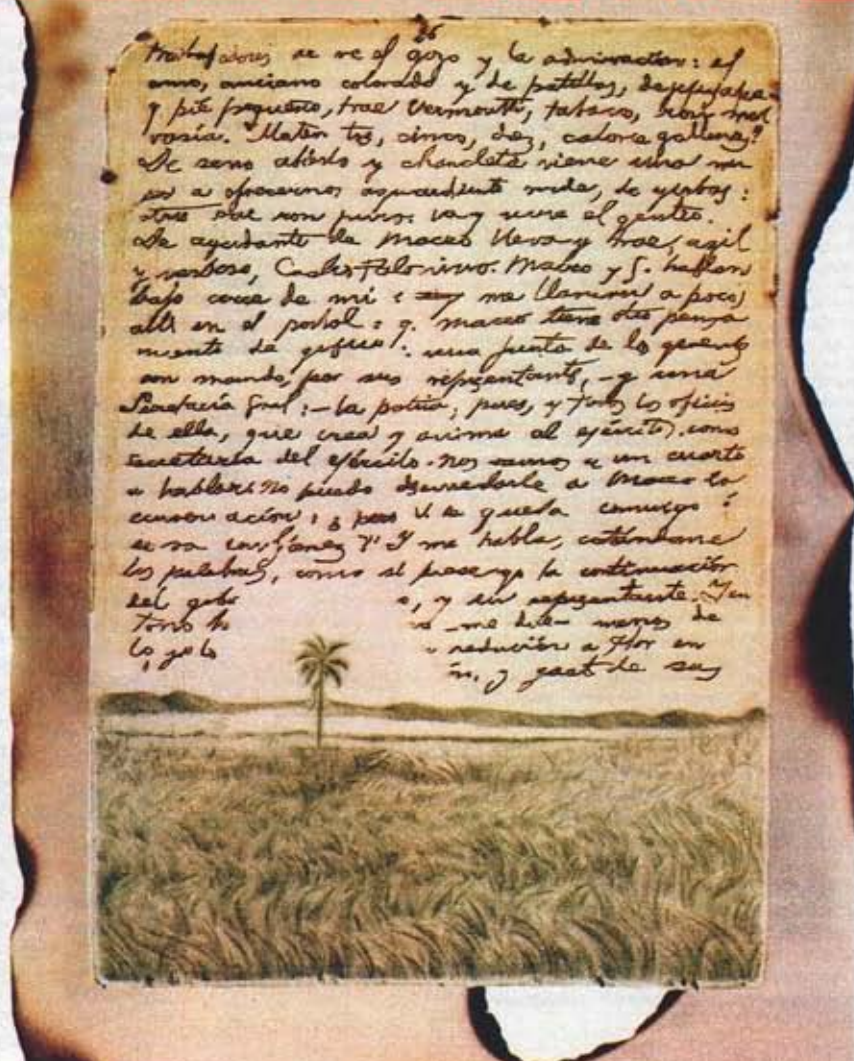 36
trabajadores se ve el gozo y la admiracion: el
amo, anciano colorado y de patillas, de jipijapa
y pié pequeño, trae Vermouth, tabaco, ron, mal
vasía. "Maten tres, cinco, diez, catorce gallinas."
De seno abierto y chancleta viene una mu
jer a ofrecernos aguardiente verde, de yerbas:
otra trae ron puro. Va y viene el gentío.
De ayudante de Maceo lleva y trae, ágil
y verboso, Castro Palomino. Maceo y G. hablan
bajo cerca de mí: me llaman a poco,
allí en el portal: q. Maceo tiene otro pensa
miento de gobierno: una junta de los generales
con mando, por sus representantes, – y una
Secretaría Gral:– la patria, pues, y todos los oficios
de ella, que crea y anima al ejército, como
secretaría del ejército. Nos vamos a un cuarto
a hablar. No puedo desenredarle a Maceo la
conversación: ¿pero V. se queda conmigo o
se va con Gómez?" Y me habla, cortándome
las palabras, como si fuese yo la continuación
del gob o, y su representante.
me dice– menos de
lo q. lo reducción a Flor en
n, y gast de sus